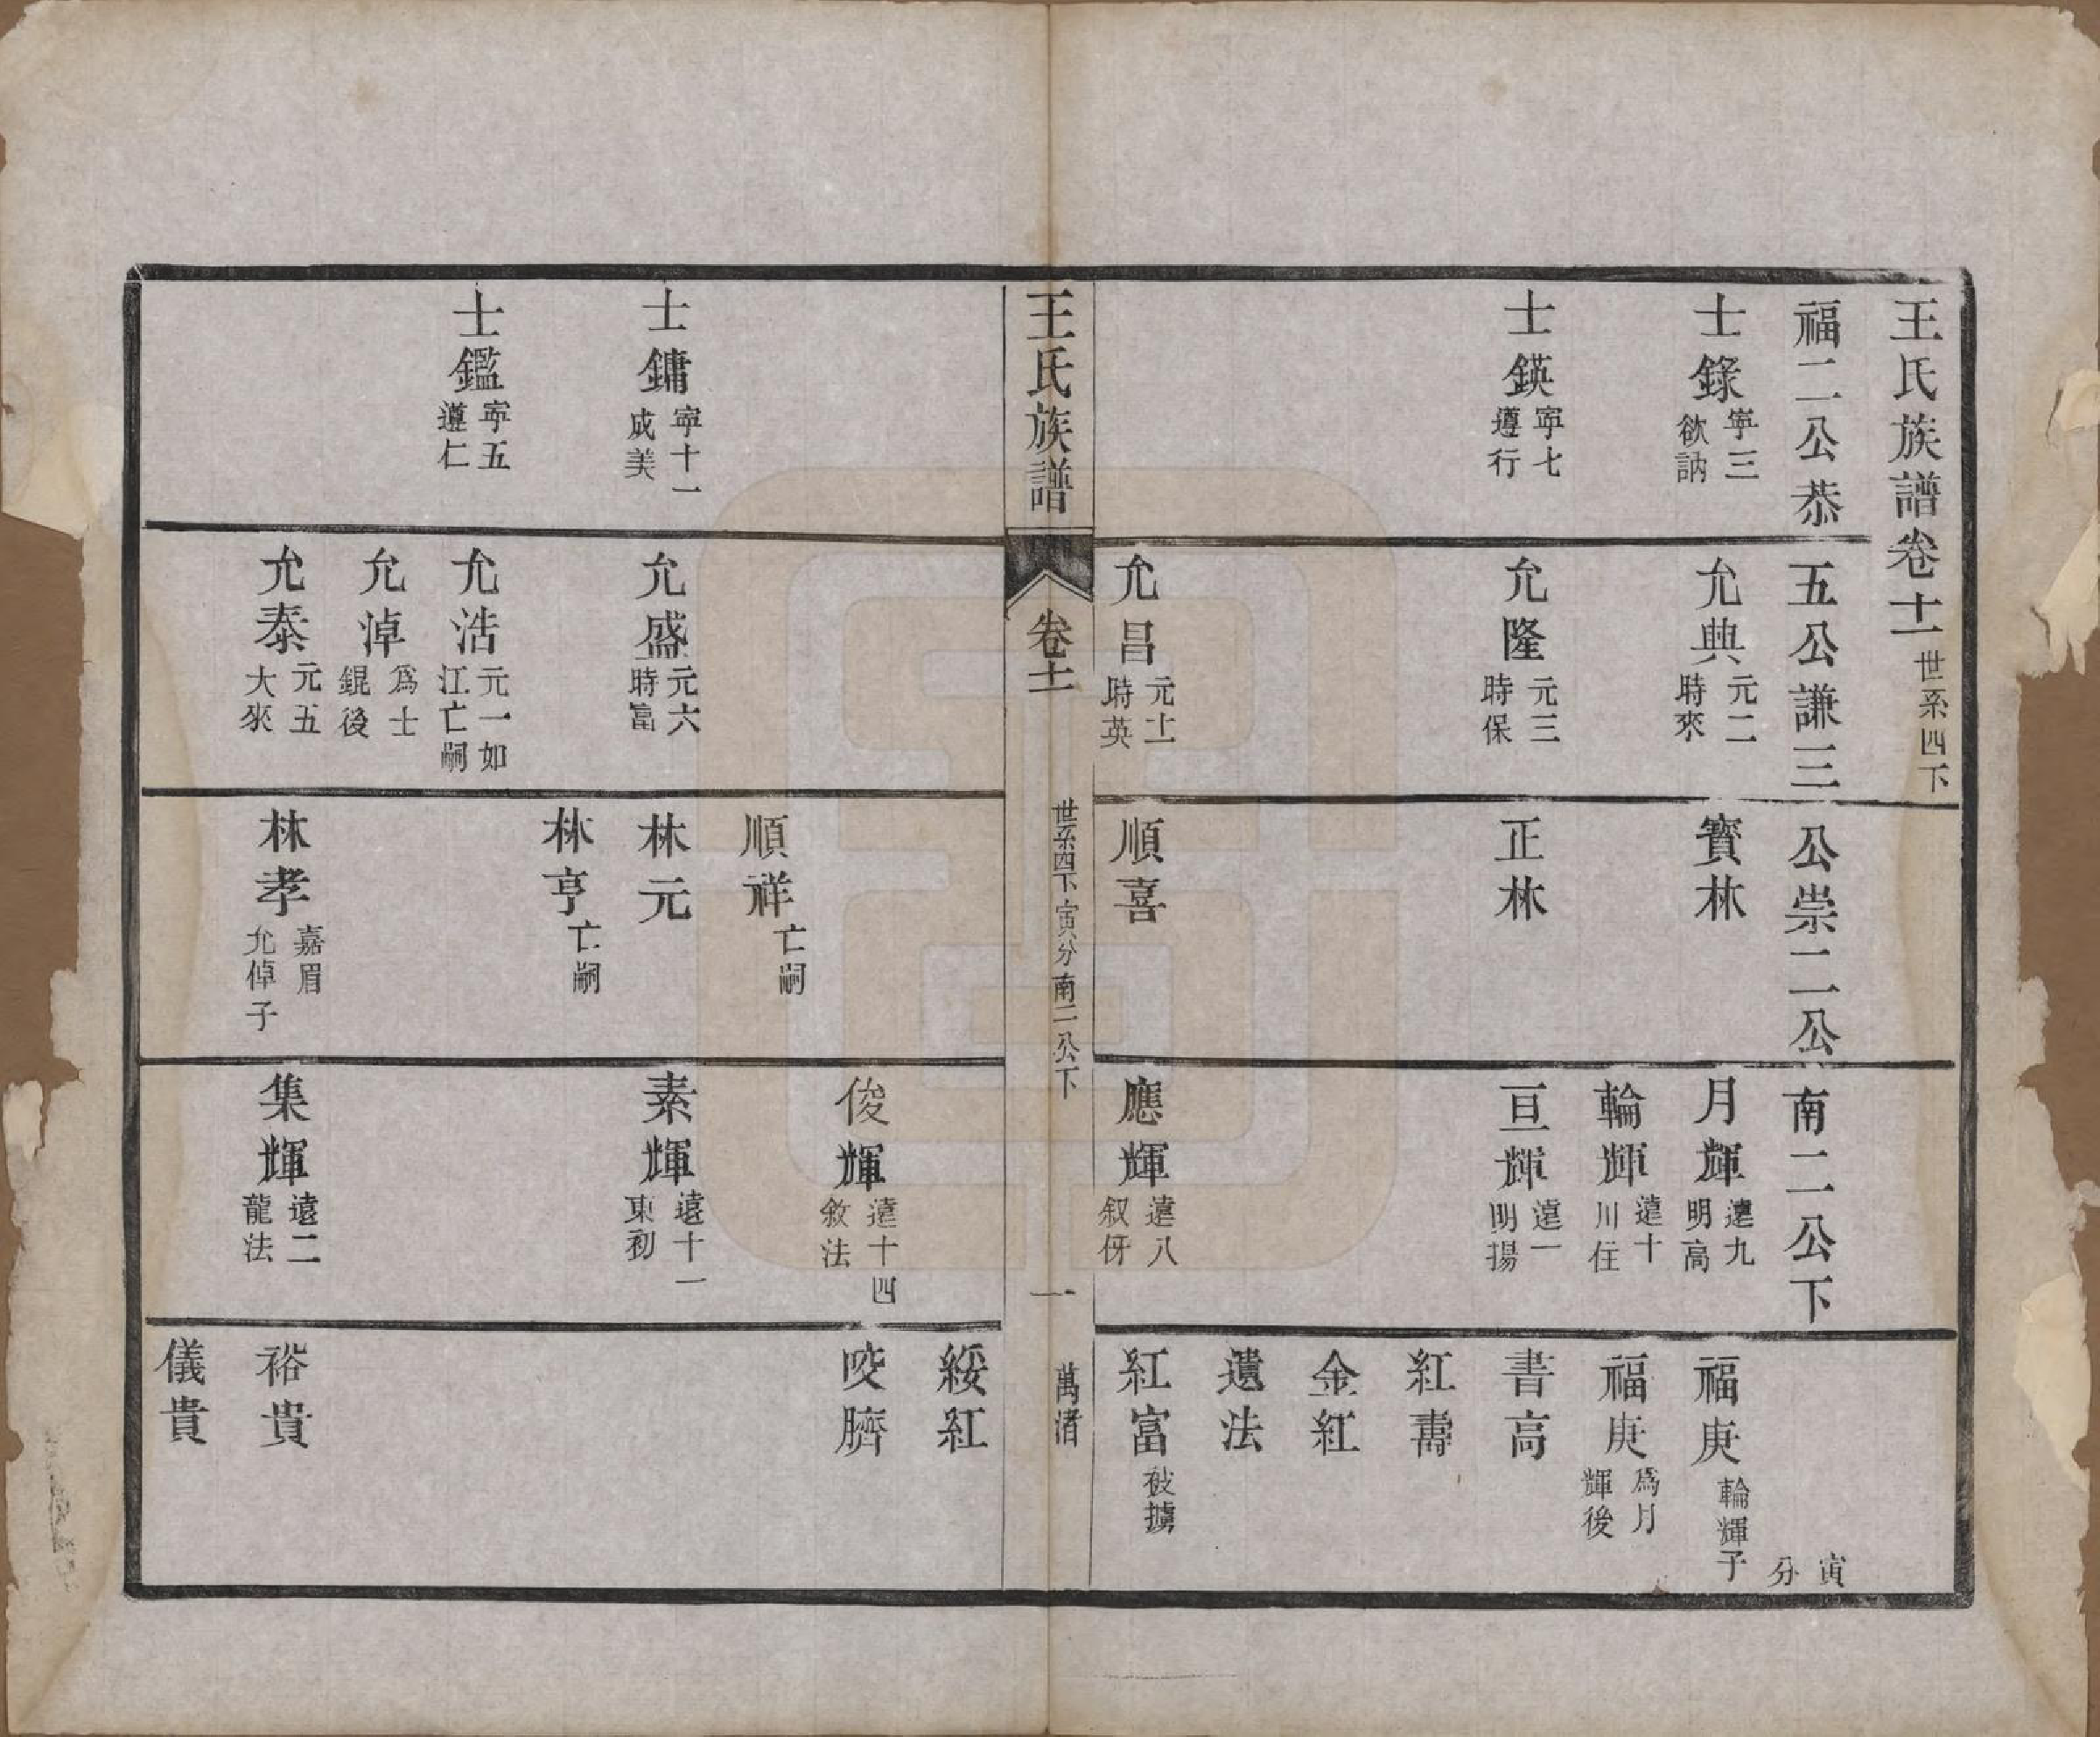 王氏族譜卷十一世系四下
福二公恭五公謙三公崇二公南二公下寅分
士錄寧三欲訥
允典元二時來
寳林
月輝遠九明高
福庚輪輝子
輪輝遠十川任
福庚為月輝後
士鍈寧七遵行
允隆元三時保
正林
亘輝遠一明揚
書高
紅壽
金紅
遺法
允昌元十一時英
順喜
應輝遠八叙伢
紅富被擄
王氏族譜 卷十一 世系四下寅分南二公下 一 萬渚
綏紅
俊輝遠十四敘法
咬臍
順祥亡嗣
士鏞寧十一成美
允盛元六時富
林元
素輝遠十一東初
林亨亡嗣
士鑑寧五遵仁
允浩元一如江亡嗣
允淖為士錕後
允泰元五大來
林孝嘉眉允倬子
集輝遠二龍法
裕貴
儀貴